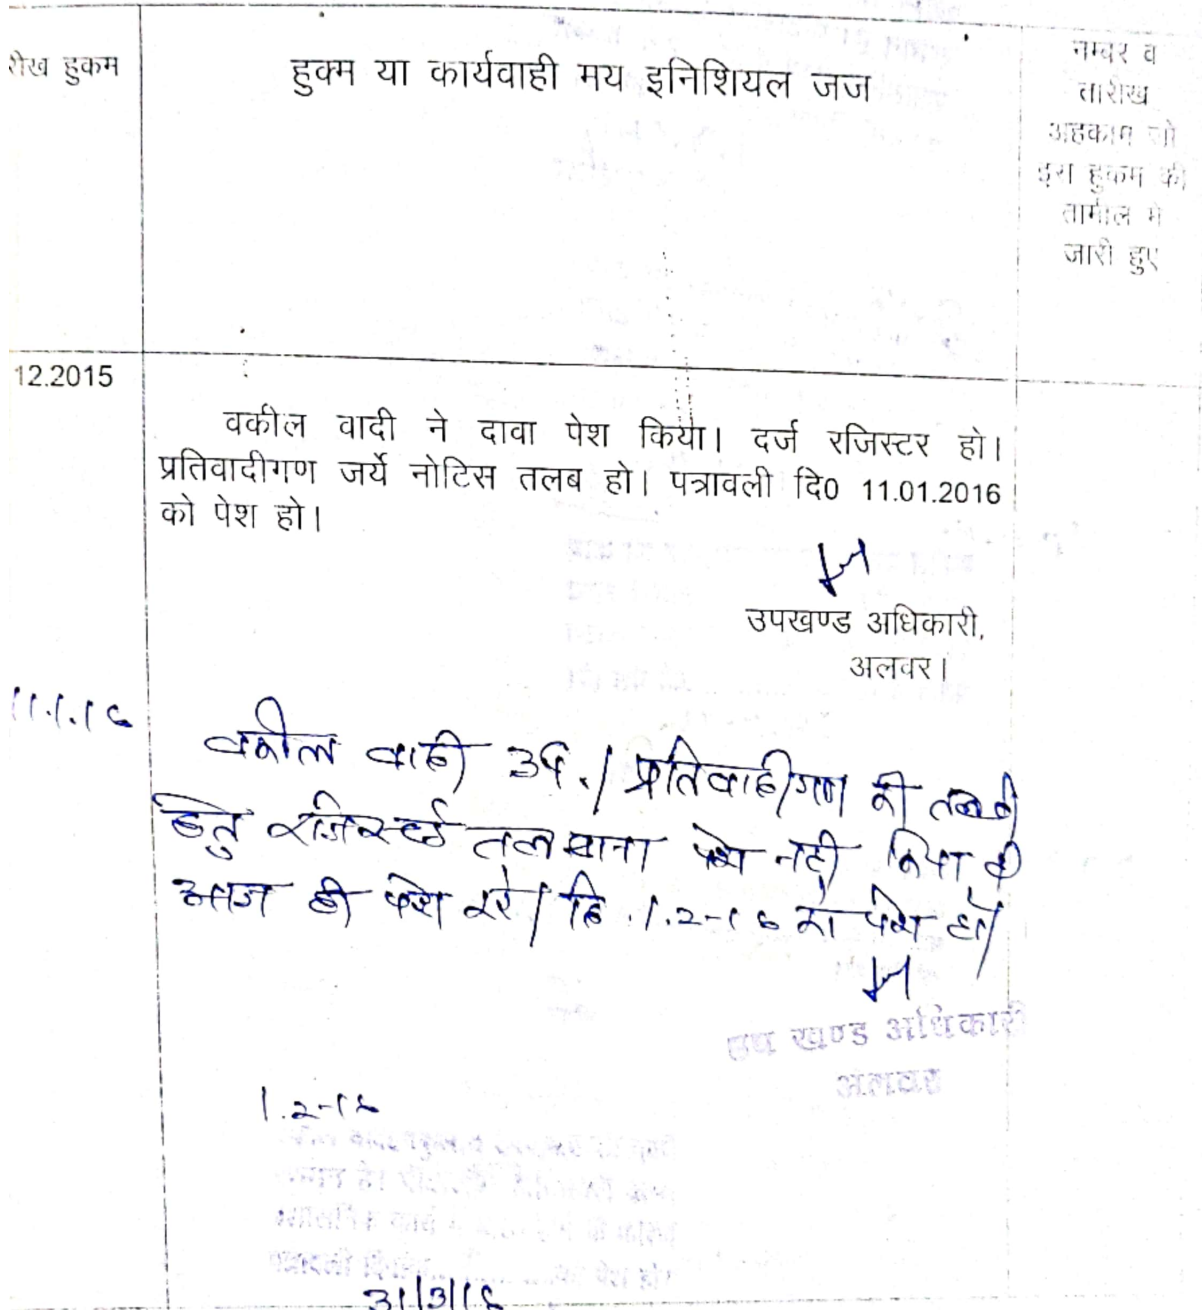 हुकम
हुक्म या कार्यवाही मय इनिशियल जज
नम्बर व
तारीख
अहकाम जो
इस हुकम की
तामील मे
जारी हुए
12.2015
वकील वादी ने दावा पेश किया। दर्ज रजिस्टर हो।
प्रतिवादीगण जर्ये नोटिस तलब हो। पत्रावली दि0 11.01.2016
को पेश हो।
उपखण्ड अधिकारी,
अलवर।
11.1.16
वकील वादी उप./ प्रतिवादीगण की तलबी
हेतु रजिस्टर्ड तलबाना पेश नही किया है
आज ही पेश करे/ दि.1.2-16 को पेश हो/
उप खण्ड अधिकारी
अलवर
1.2-16
31/3/16